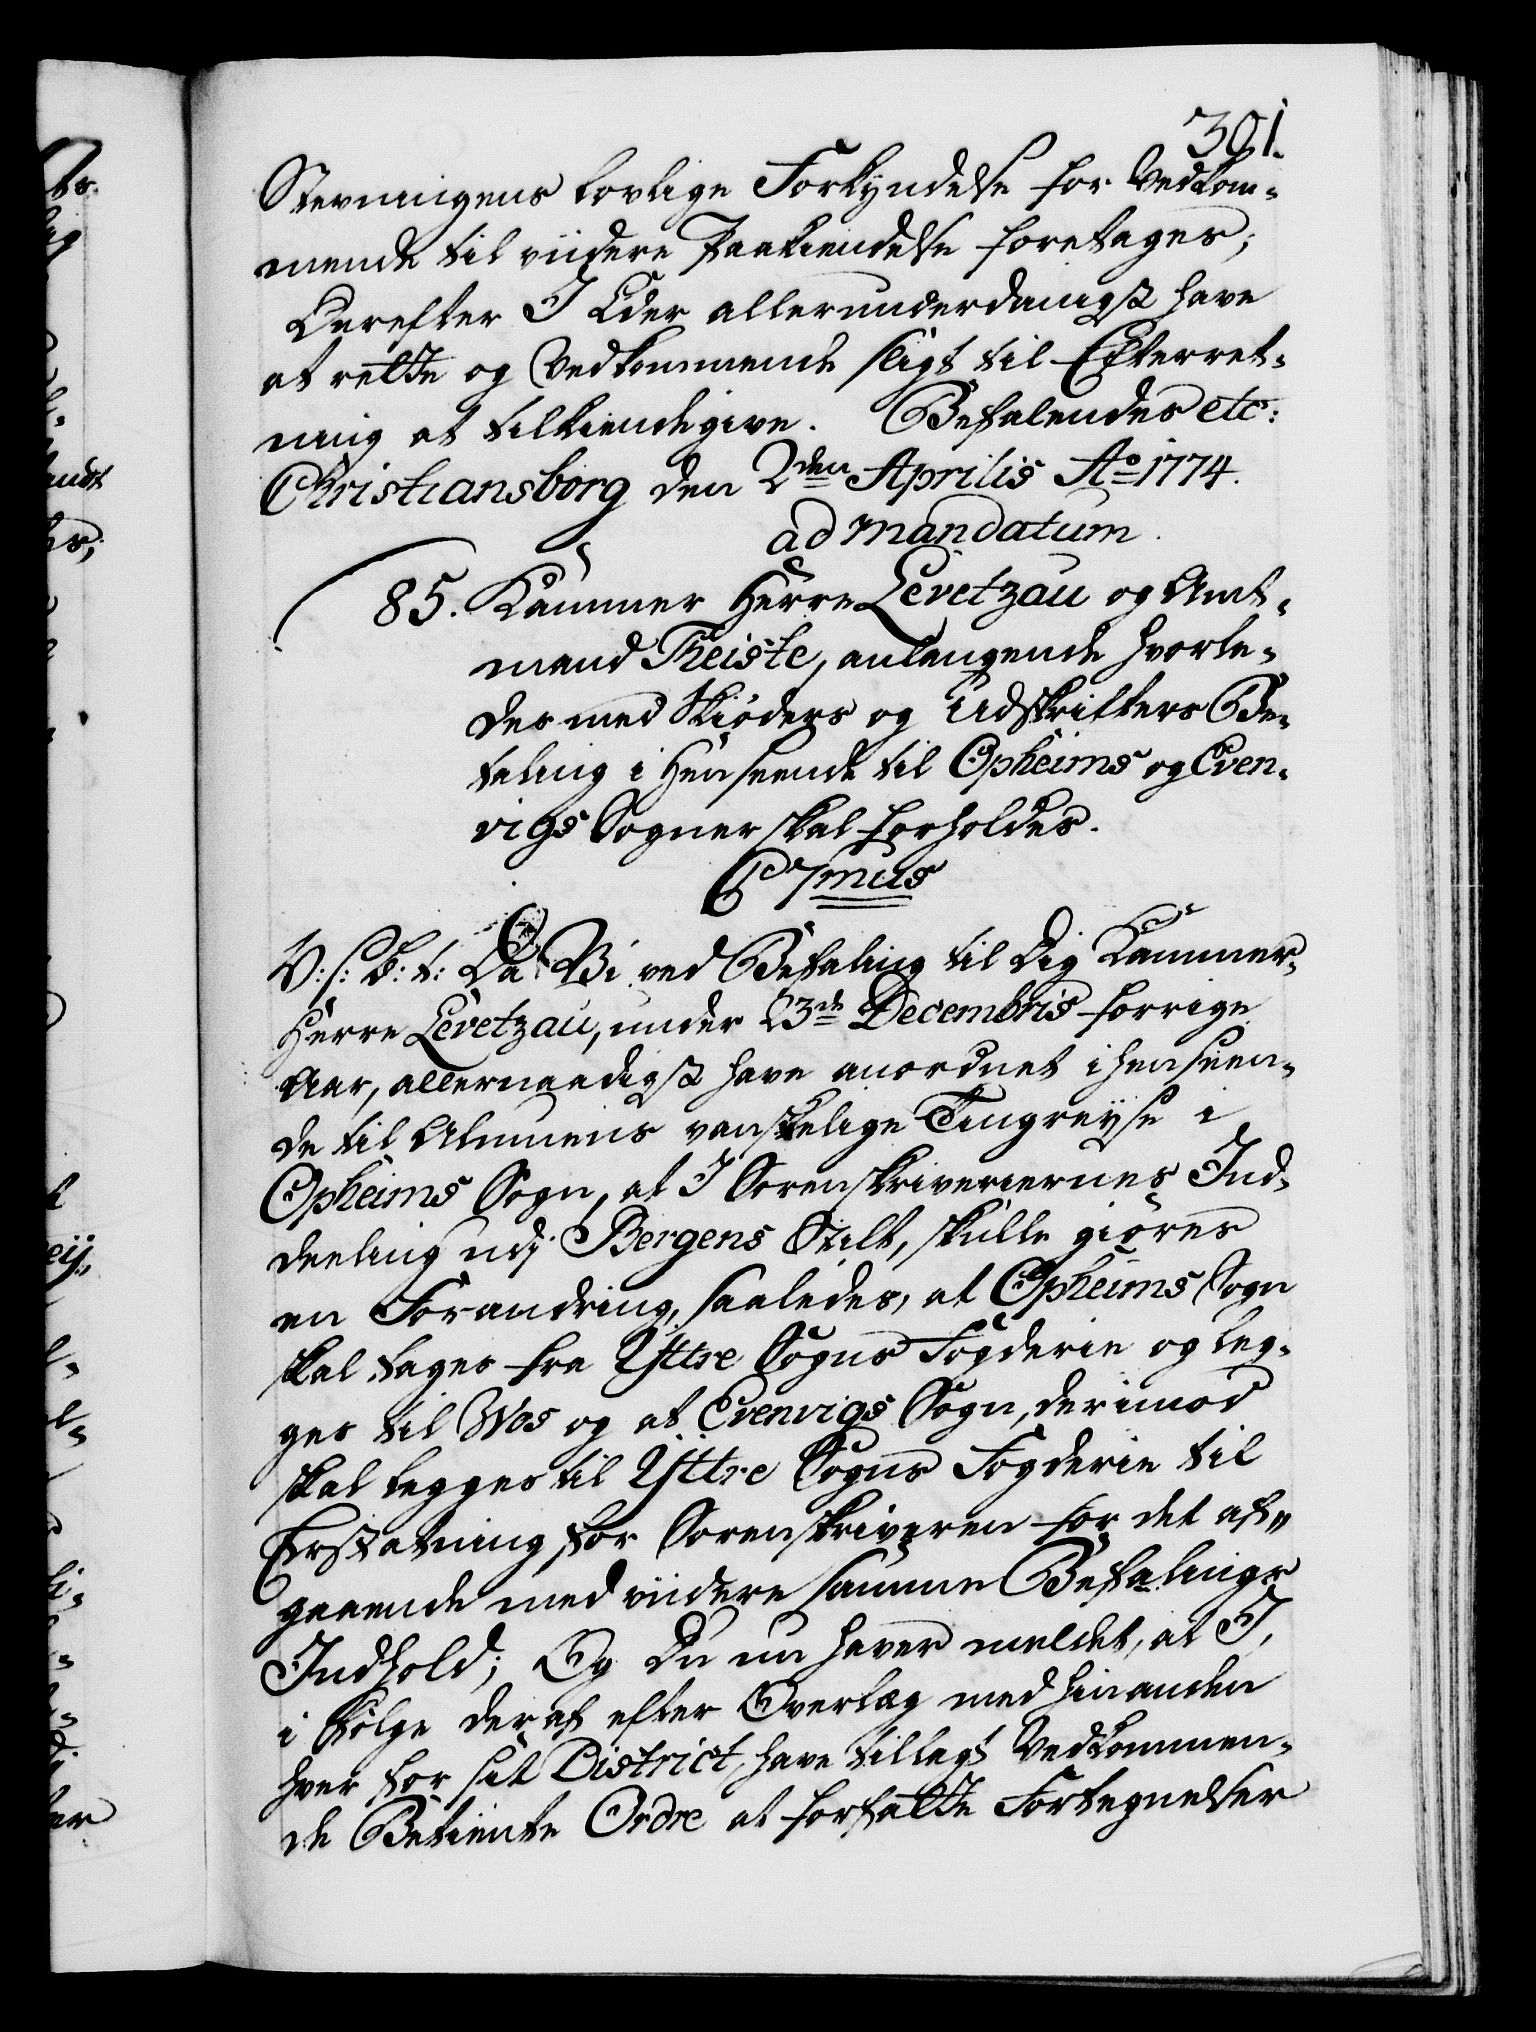 301.
Stevningens lovlige Forkyndelse for Vedkom-
mende til viidere Paakiendelse foretages;
Derefter I Eder allerunderdanigst have
at rette og Vedkommende sligt til Efterret-
ning at tilkiendegive. Befalendes etc:
Christiansborg den 2den Aprilis Ao 1774.
ad mandatum.
85. Kammer Herre Levetzau og Amt-
mand Fleiste, anlangende hvorle-
des med Skiøders og Udskrifters Be-
taling i Henseende til Opheims og Even-
vigs Sogner skal forholdes.
C 7mus
V: s: G: t: Da Vi ved Befaling til Dig Kammer-
Herre Levetzau, under 23de Decembris forrige
Aar, allernaadigst have anordnet i henseen-
de til Almuens vanskelige Tingreyse i
Opheims Sogn, at I Sorenskriveriernes Ind-
deeling udj Bergens Stift, skulle giøres
en Forandring, saaledes, at Opheims Sogn
skal tages fra Yttre Sogns Fogderie og leg-
ges til Wos og at Evenvigs Sogn, derimod
skal legges til Yttre Sogns Fogderie til
Erstatning for Sorenskriveren for det af-
gaaende med viidere samme Befalings
Indhold; Og Du nu haver meldet, at I,
i Følge deraf efter Overlæg med hinanden
hver for sit District, have tillagt Vedkommen-
de Betiente Ordre at forfatte Fortegnelser